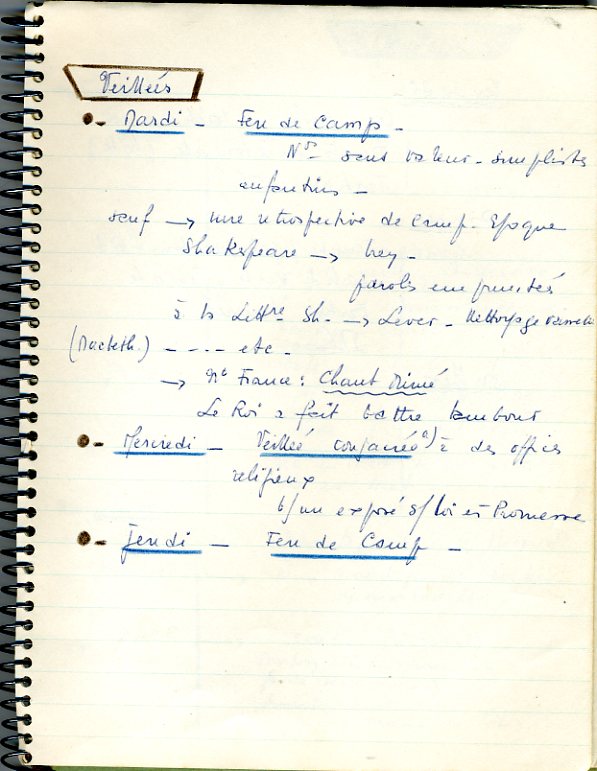 Veillées
- Mardi - Feu de Camp -
Nos sans valeur - simplistes
enfantins -
sauf → une rétrospective de camp. Epoque
Shakespeare →
paroles empruntées
à la Littre Sh. → Lever - Nettoyage
(Macbeth.) - - - - etc -
→ No France : Chant Mimé
Le Roi a fait battre tambour
- Mercredi - Veillée consacrée a) à des offices
religieux
b/ un exposé s/ Loi et Promesse
- Jeudi - Feu de Camp -